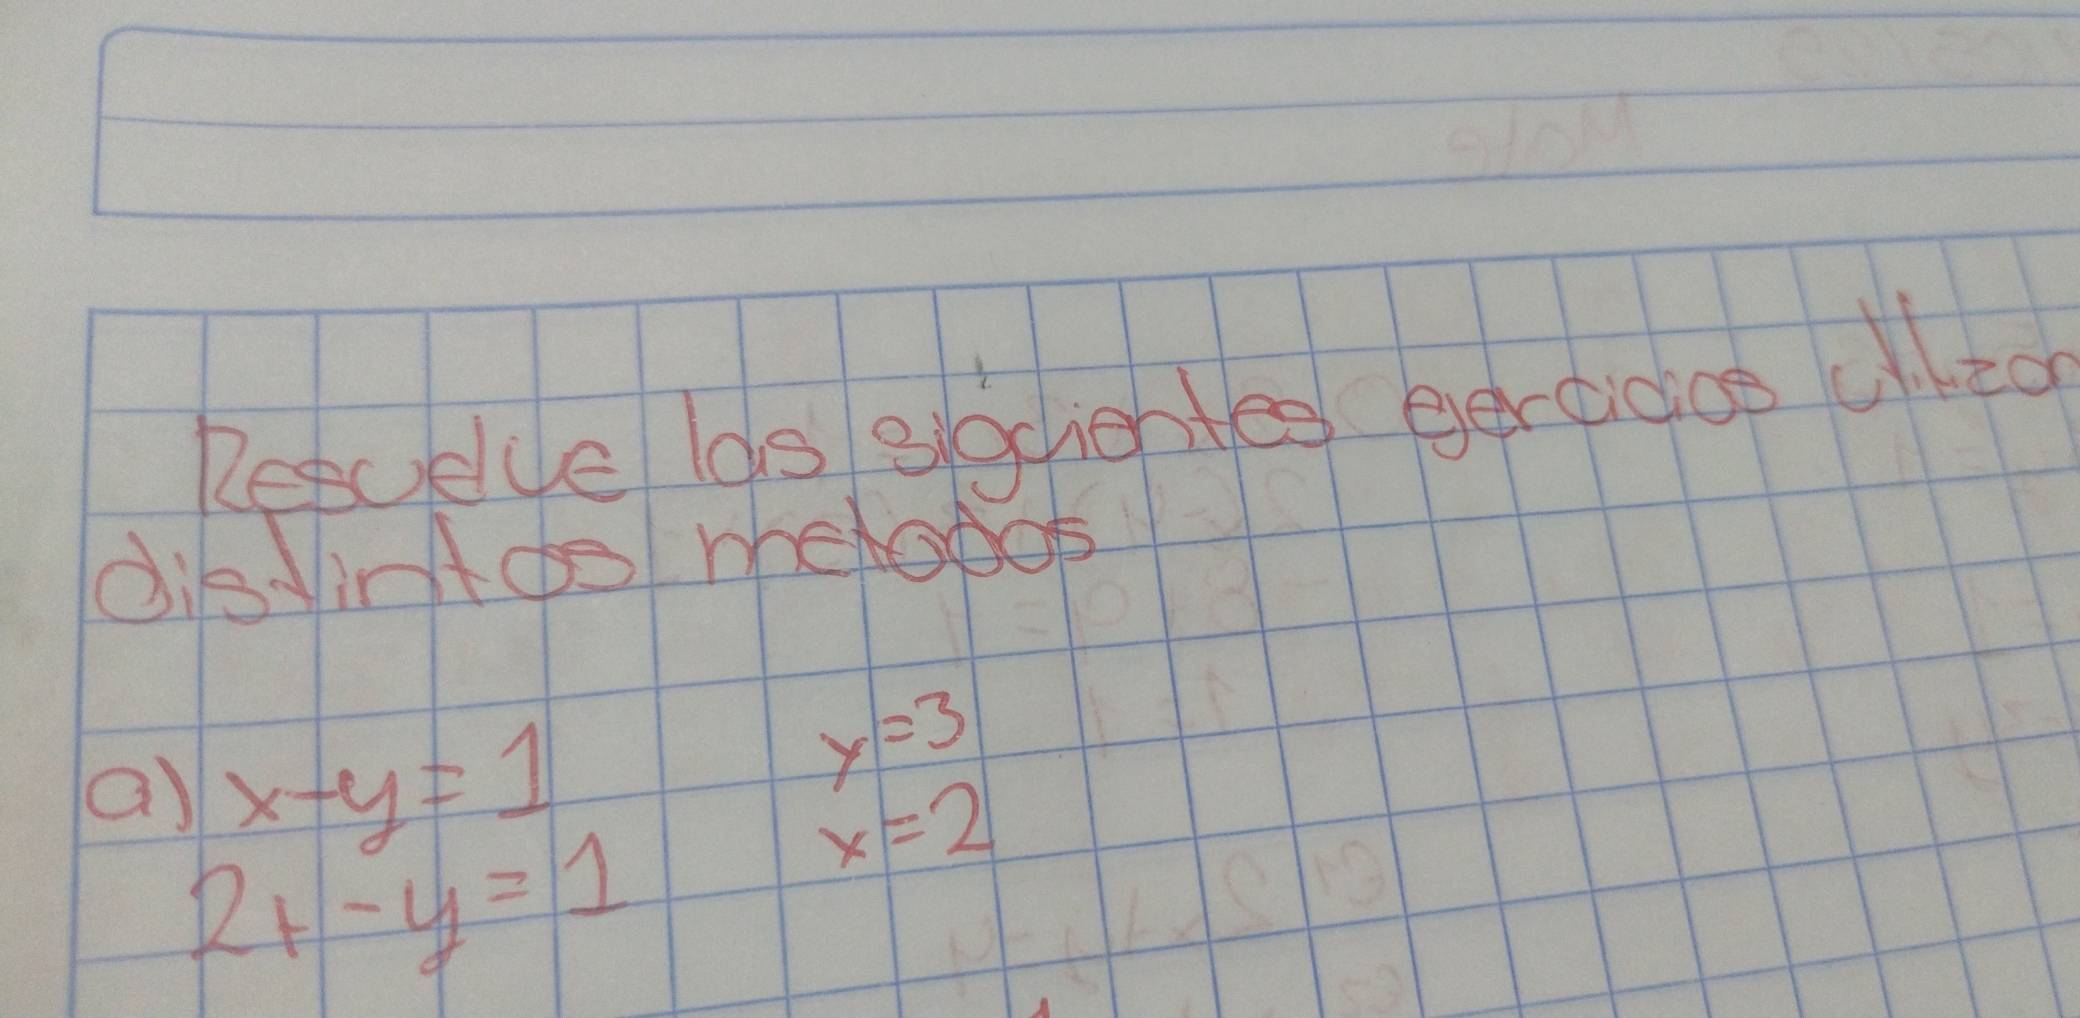 Resuelve los siguientes ejercicios utilizan
distintos metodos
a) x-y=1
y=3
2x-y=1
x=2